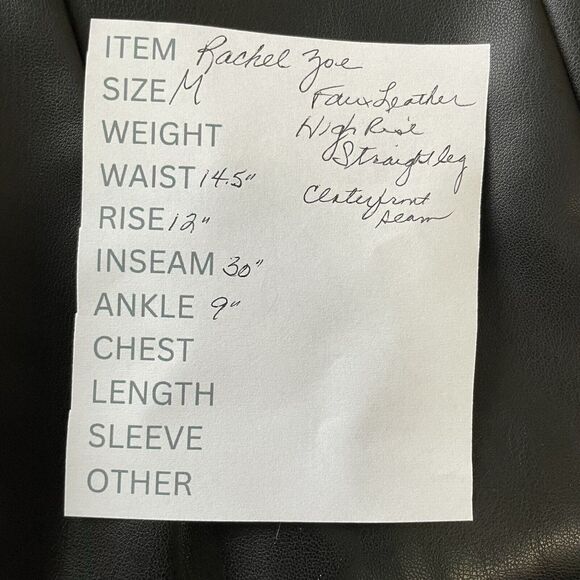 ITEM Rachel Zoe
SIZE M
Faux Leather
High Rise
Straight leg
Center front
seam
WEIGHT
WAIST 14.5"
RISE 12"
INSEAM 30"
ANKLE 9"
CHEST
LENGTH
SLEEVE
OTHER